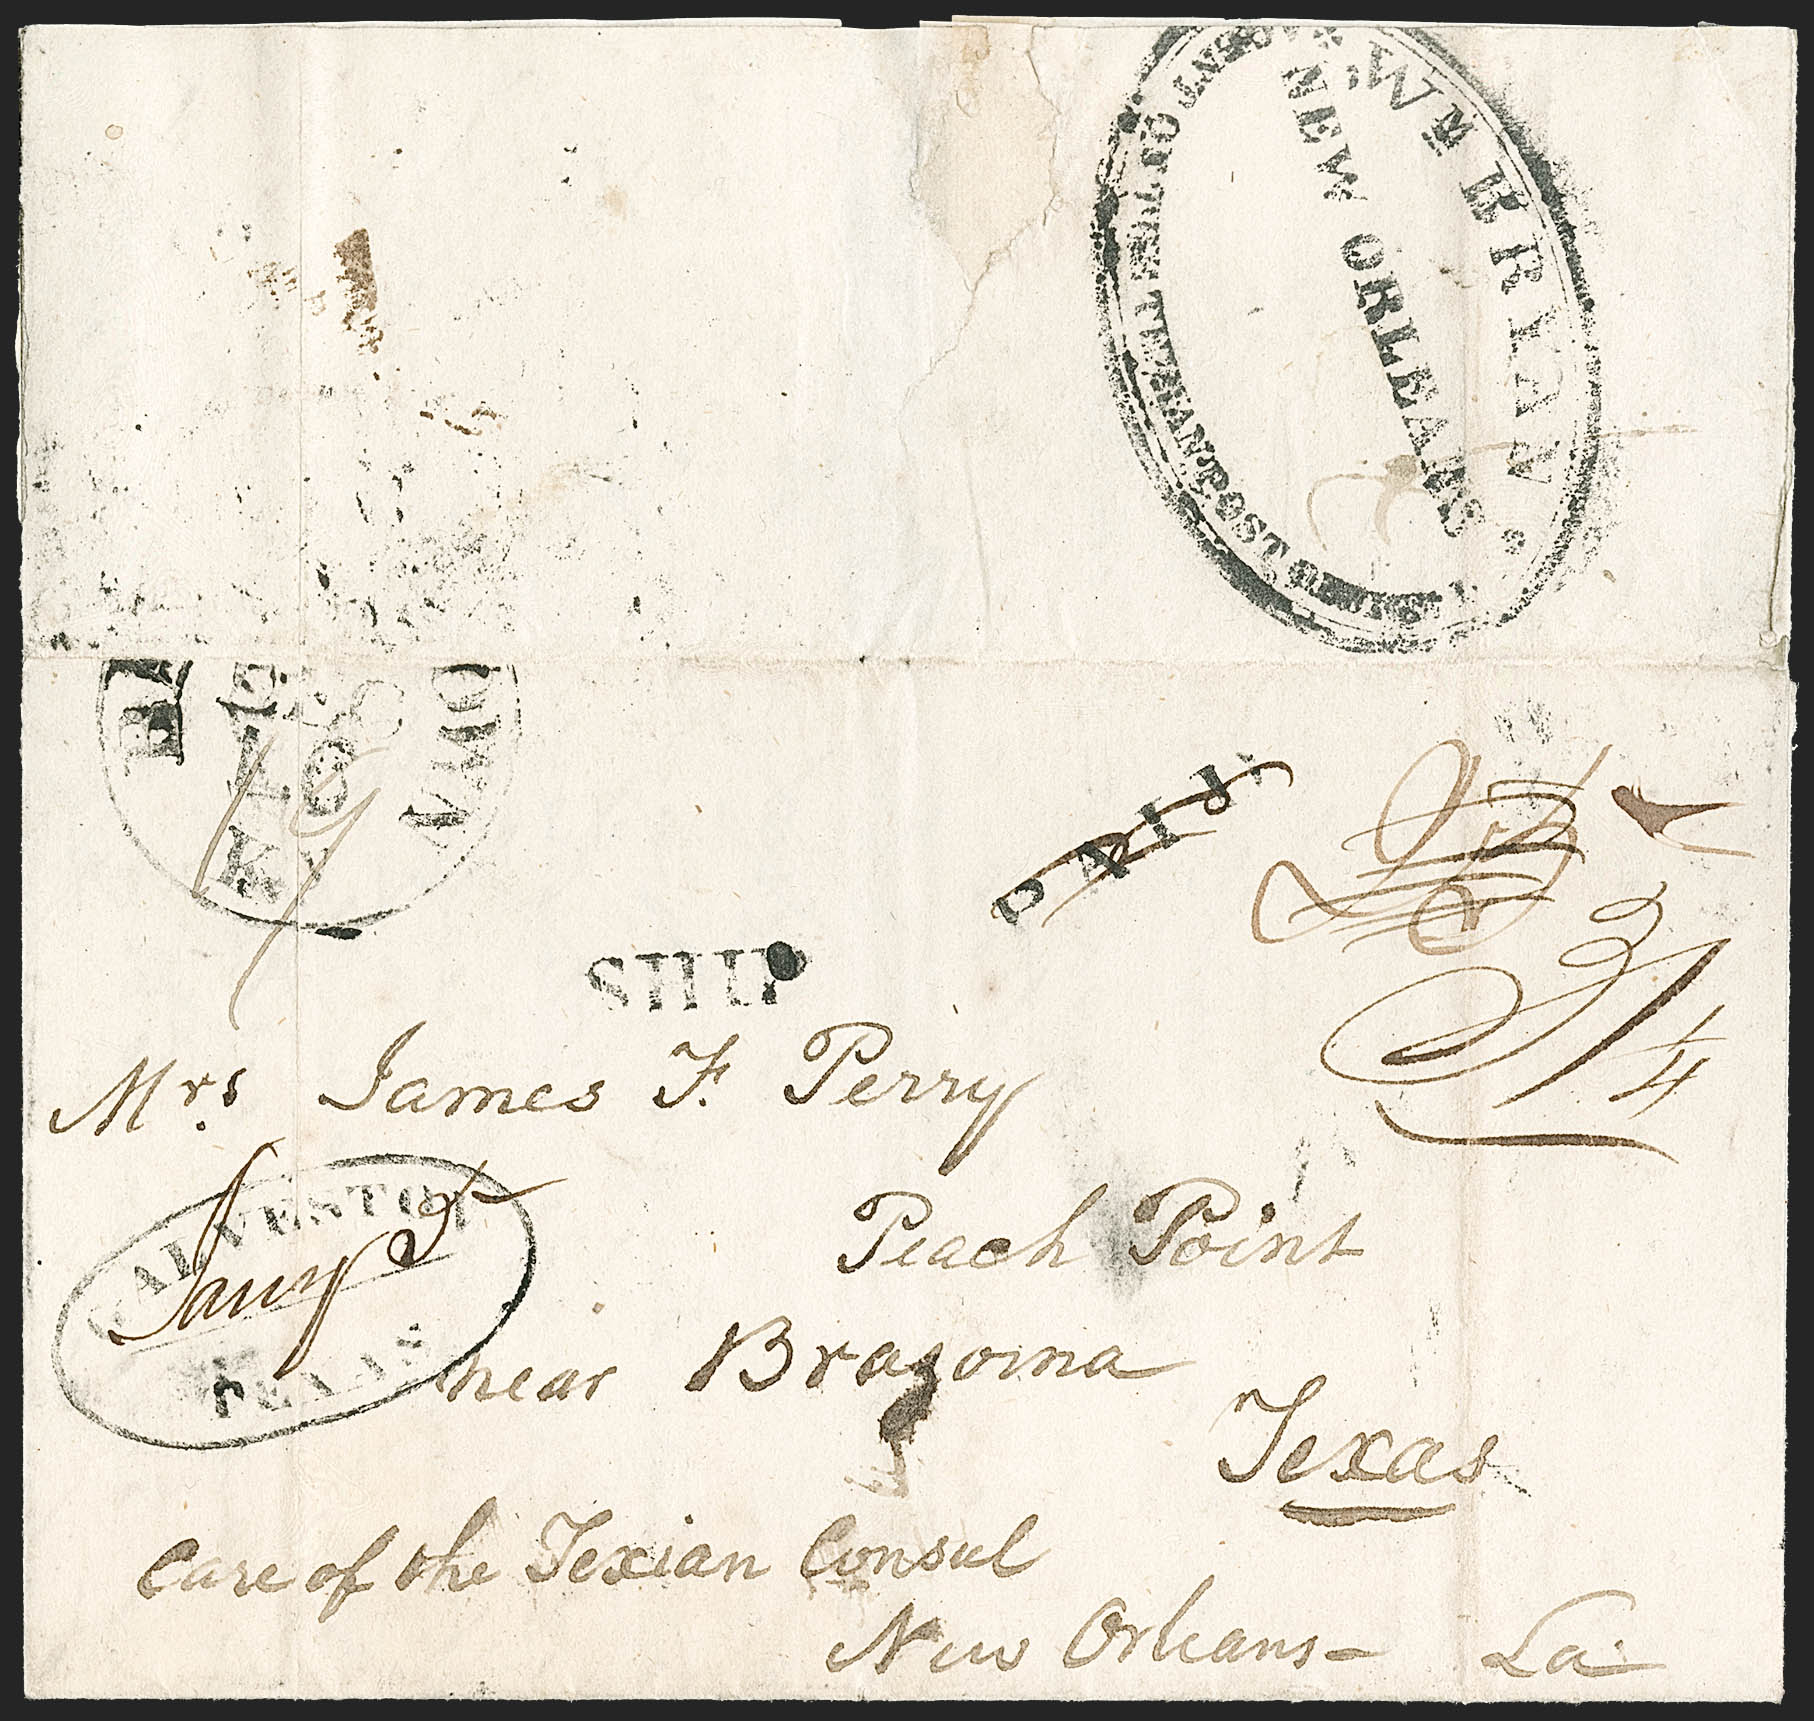 Wm BRYAN
NEW ORLEANS
AGENT OF THE TEXIAN POST
KY
PAID
25
SHIP
31 1/4
Mrs. James F. Perry
GALVESTON
Jany 5
TEXAS
Peach Point
near Brazoria
Texas
Care of the Texian Consul
New Orleans - La